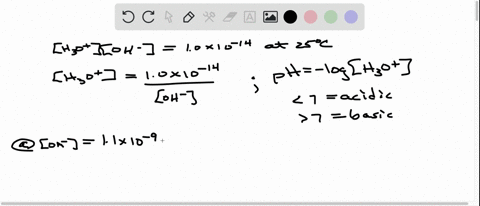 [H₃O⁺][OH⁻] = 1.0×10⁻¹⁴ at 25°C
[H₃O⁺] = 1.0×10⁻¹⁴ / [OH⁻] ; pH = -log[H₃O⁺]
< 7 = acidic
> 7 = basic
ⓐ [OH⁻] = 1.1×10⁻⁹